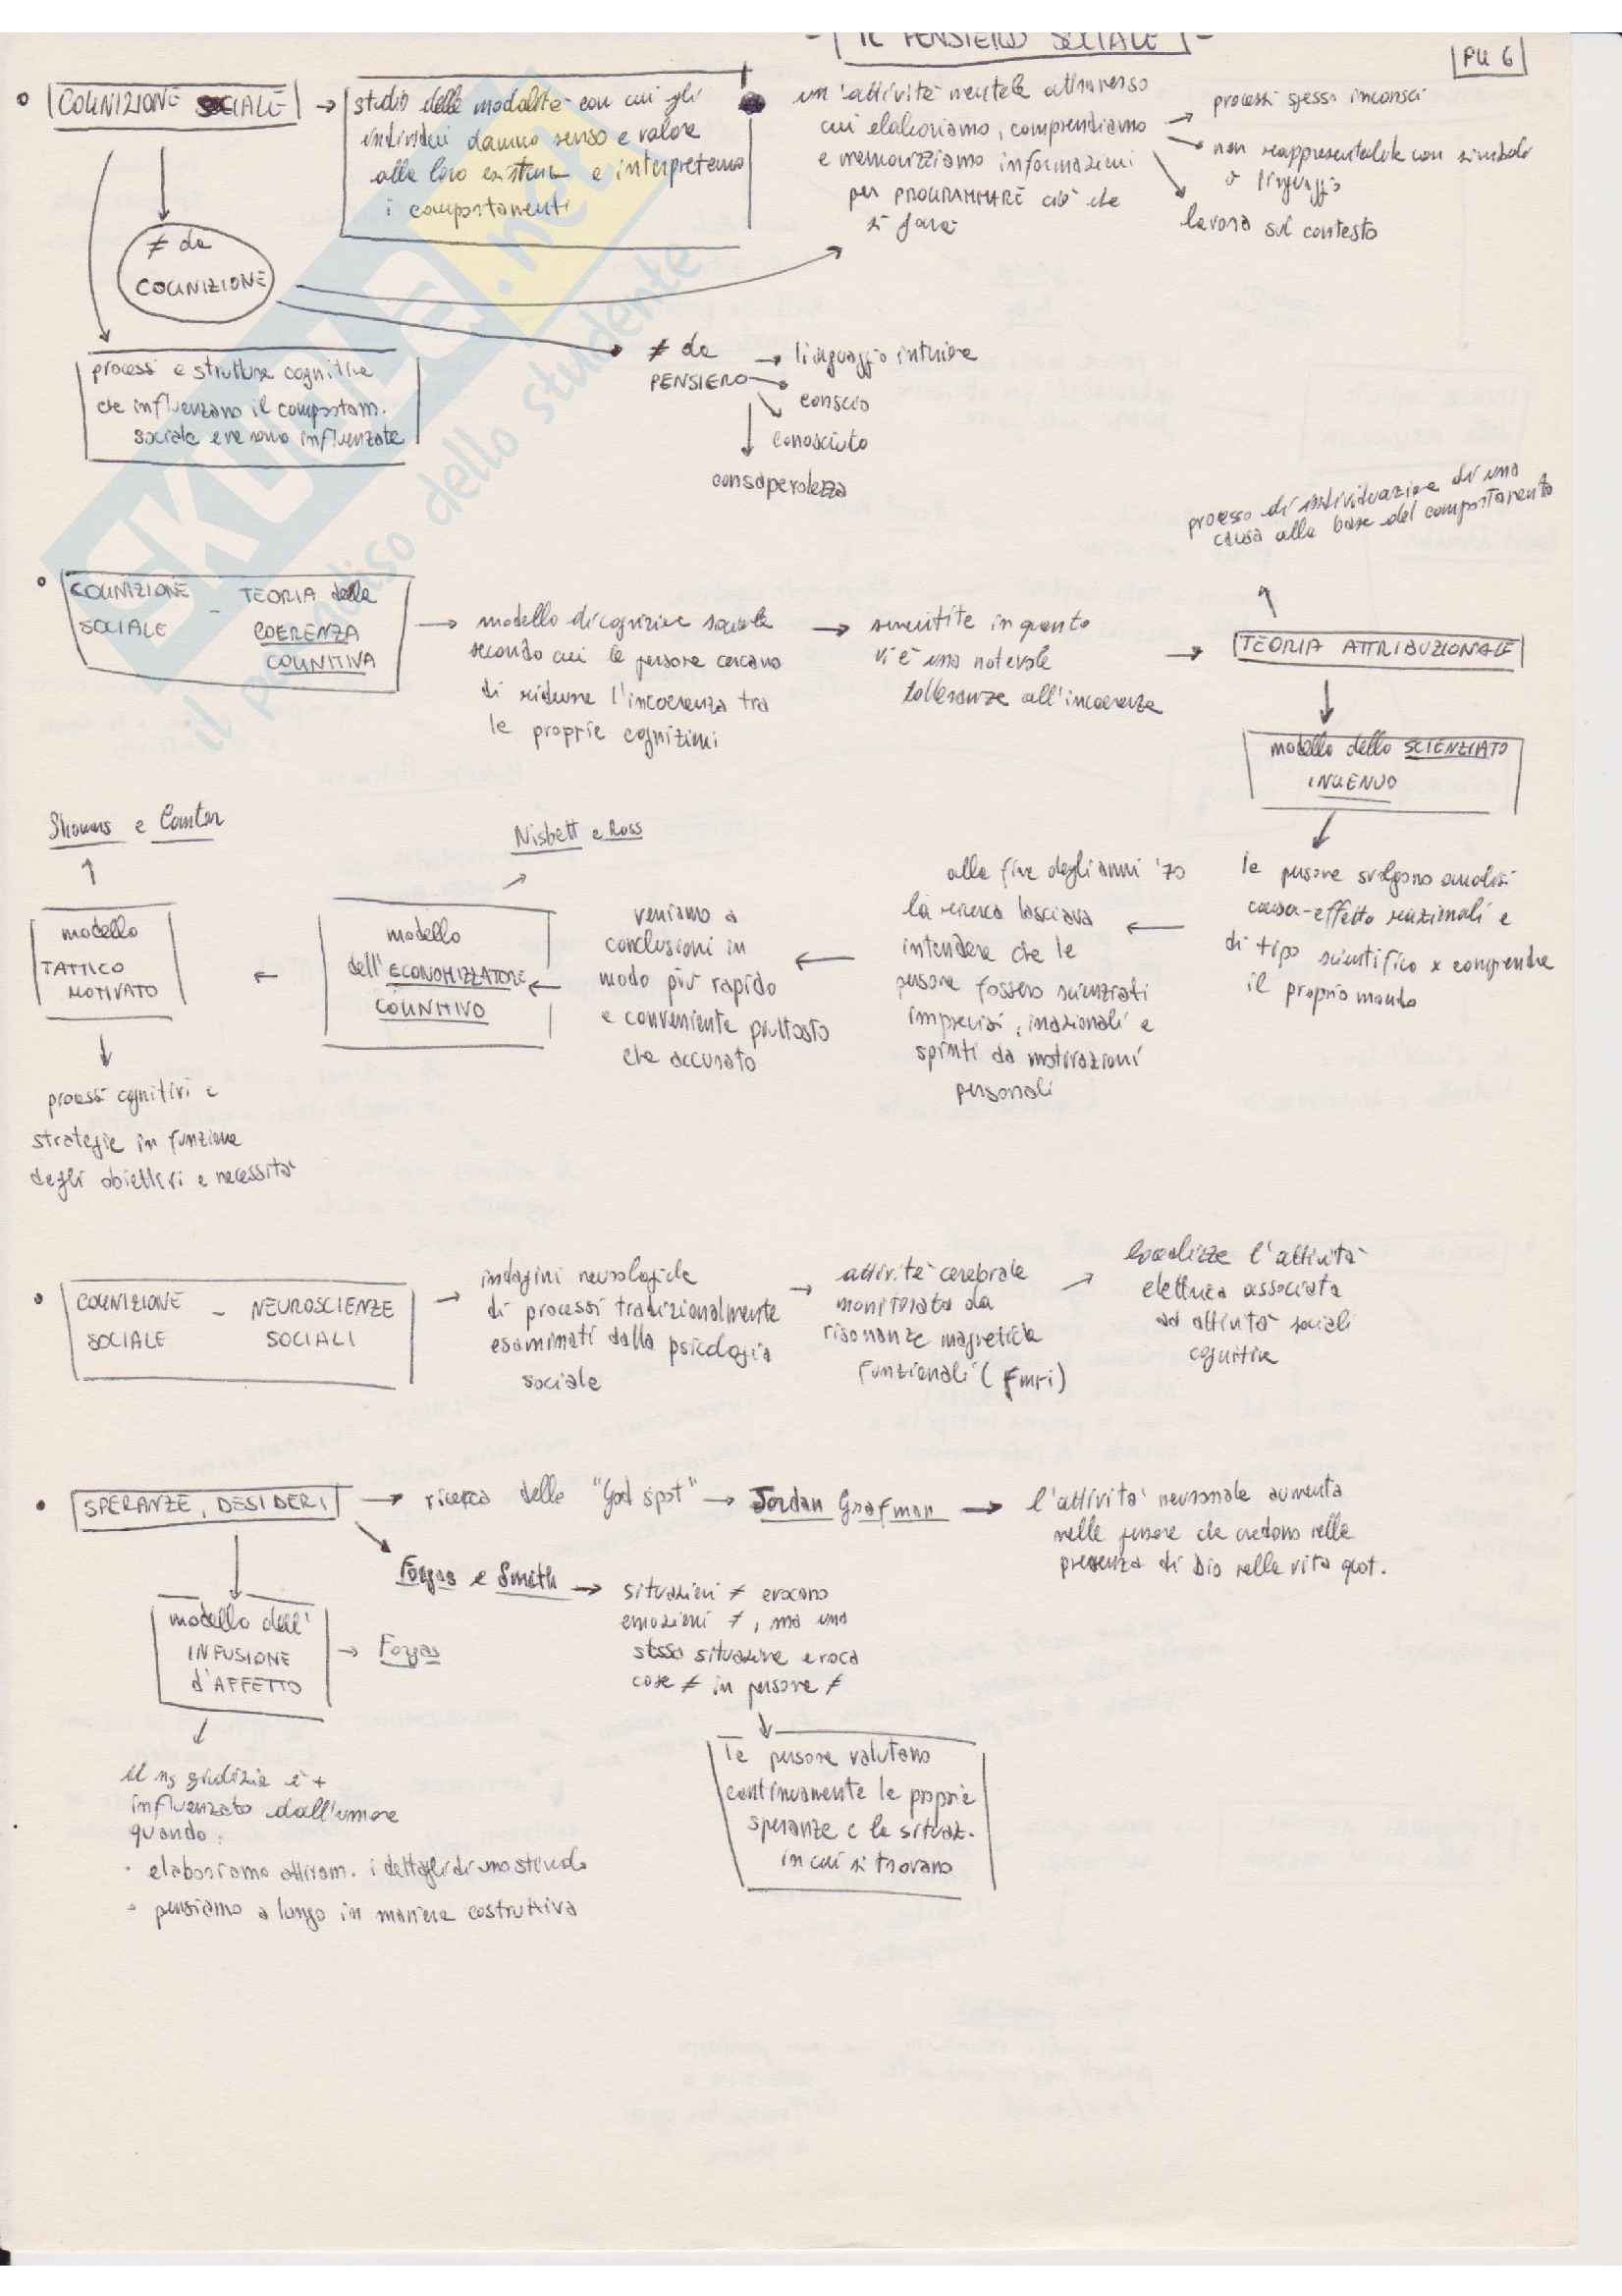 IL PENSIERO SOCIALE
PU 6
COGNIZIONE SOCIALE
studio delle modalità con cui gli
individui danno senso e valore
alla loro esistenza e interpretano
i comportamenti
un'attività mentale attraverso
cui elaboriamo, comprendiamo
e memorizziamo informazioni
per PROGRAMMARE ciò che
si farà
processi spesso inconsci
non rappresentabile con simboli
o linguaggio
lavora sul contesto
≠ da
COGNIZIONE
processi e strutture cognitive
che influenzano il comportam.
sociale e ne sono influenzate
≠ da
PENSIERO
linguaggio interiore
conscio
conosciuto
consapevolezza
processo di individuazione di una
causa alla base del comportamento
COGNIZIONE - TEORIA della
SOCIALE COERENZA
COGNITIVA
modello di cognizione sociale
secondo cui le persone cercano
di ridurre l'incoerenza tra
le proprie cognizioni
smentite in quanto
vi è una notevole
tolleranza all'incoerenza
TEORIA ATTRIBUZIONALE
modello dello SCIENZIATO
INGENUO
le persone svolgono analisi
causa-effetto razionali e
di tipo scientifico x comprendere
il proprio mondo
alla fine degli anni '70
la ricerca lasciava
intendere che le
persone fossero scienziati
imprecisi, irrazionali e
spinti da motivazioni
personali
veniamo a
conclusioni in
modo più rapido
e conveniente piuttosto
che accurato
Nisbett e Ross
modello
dell'ECONOMIZZATORE
COGNITIVO
Showers e Cantor
modello
TATTICO
MOTIVATO
processi cognitivi e
strategie in funzione
degli obiettivi e necessità
COGNIZIONE - NEUROSCIENZE
SOCIALE SOCIALI
indagini neurologiche
di processi tradizionalmente
esaminati dalla psicologia
sociale
attività cerebrale
monitorata da
risonanze magnetiche
funzionali (fmri)
localizza l'attività
elettrica associata
ad attività sociali
cognitive
SPERANZE, DESIDERI
ricerca delle "God spot"
Jordan Grafman
l'attività neuronale aumenta
nelle persone che credono nella
presenza di Dio nella vita quot.
Forgas e Smith
situazioni ≠ evocano
emozioni ≠, ma una
stessa situazione evoca
cose ≠ in persone ≠
le persone valutano
continuamente le proprie
speranze e le situaz.
in cui si trovano
modello dell'
INFUSIONE
d'AFFETTO
Forgas
il ns giudizio è +
influenzato dall'umore
quando:
· elaboriamo attivam. i dettagli di uno stimolo
· pensiamo a lungo in maniera costruttiva
SKUOLA.net
il paradiso dello studente